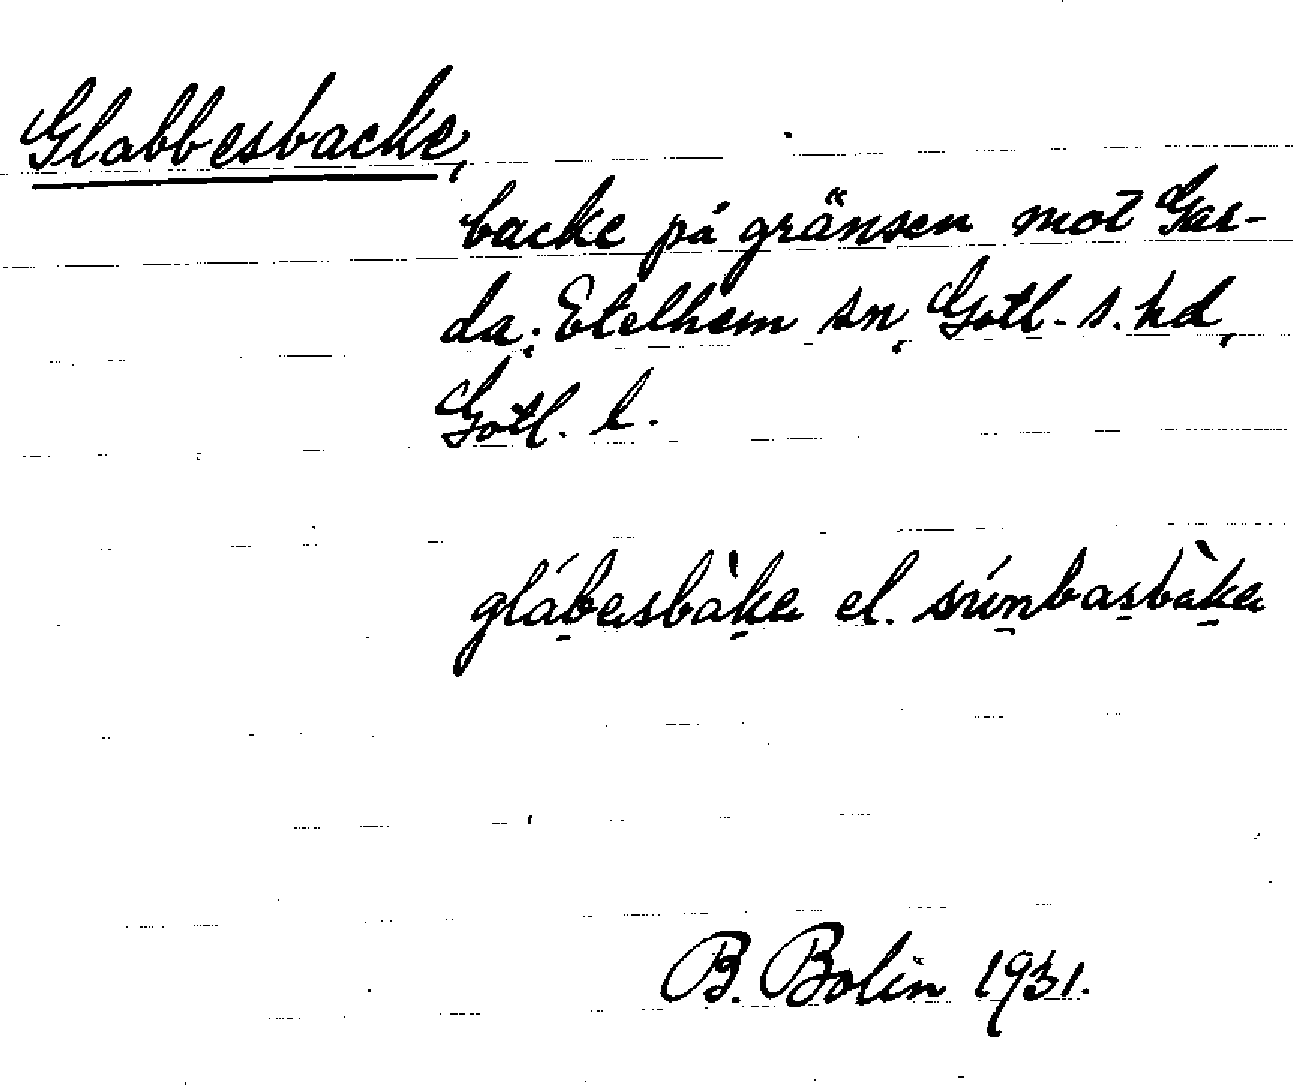 Glabbesbacke,
backe på gränsen mot Gar-
da; Etelhem sn, Gotl. s. hd,
Gotl. l.
glábesbàke el. súnbasbàke
B. Bolin 1931.